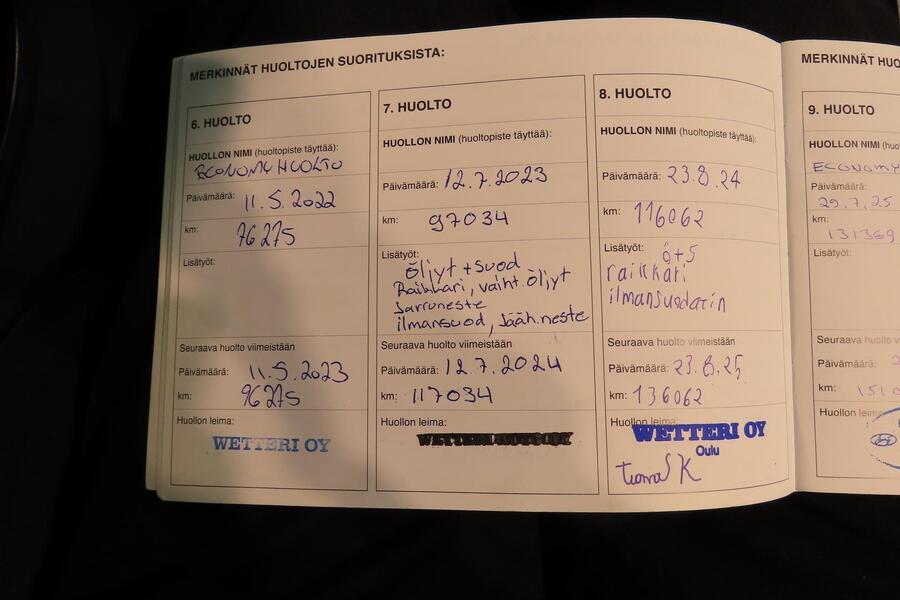 MERKINNÄT HUOLTOJEN SUORITUKSISTA:
6. HUOLTO
HUOLLON NIMI (huoltopiste täyttää):
ECONOMY HUOLTO
Päivämäärä: 11.5.2022
km: 76275
Lisätyöt:
Seuraava huolto viimeistään
Päivämäärä: 11.5.2023
km: 96275
Huollon leima:
WETTERI OY
7. HUOLTO
HUOLLON NIMI (huoltopiste täyttää):
Päivämäärä: 12.7.2023
km: 97034
Lisätyöt:
öljyt + suod
Raikkari, vaiht.öljyt
Jarruneste
ilmansuod, Jääh.neste
Seuraava huolto viimeistään
Päivämäärä: 12.7.2024
km: 117034
Huollon leima:
WETTERI AUTO OY
8. HUOLTO
HUOLLON NIMI (huoltopiste täyttää):
Päivämäärä: 23.8.24
km: 116062
Lisätyöt: ö+s
raikkari
Seuraava huolto viimeistään
Päivämäärä: 23.8.25
km: 136062
Huollon leima:
WETTERI OY
Oulu
K
MERKINNÄT HUO
9. HUOLTO
HUOLLON NIMI (huol
ECONOMY
Päivämäärä:
29.7.25
km:
131369
Lisätyöt:
Seuraava huolto v
Päivämäärä: 2
km: 151 0
Huollon leima